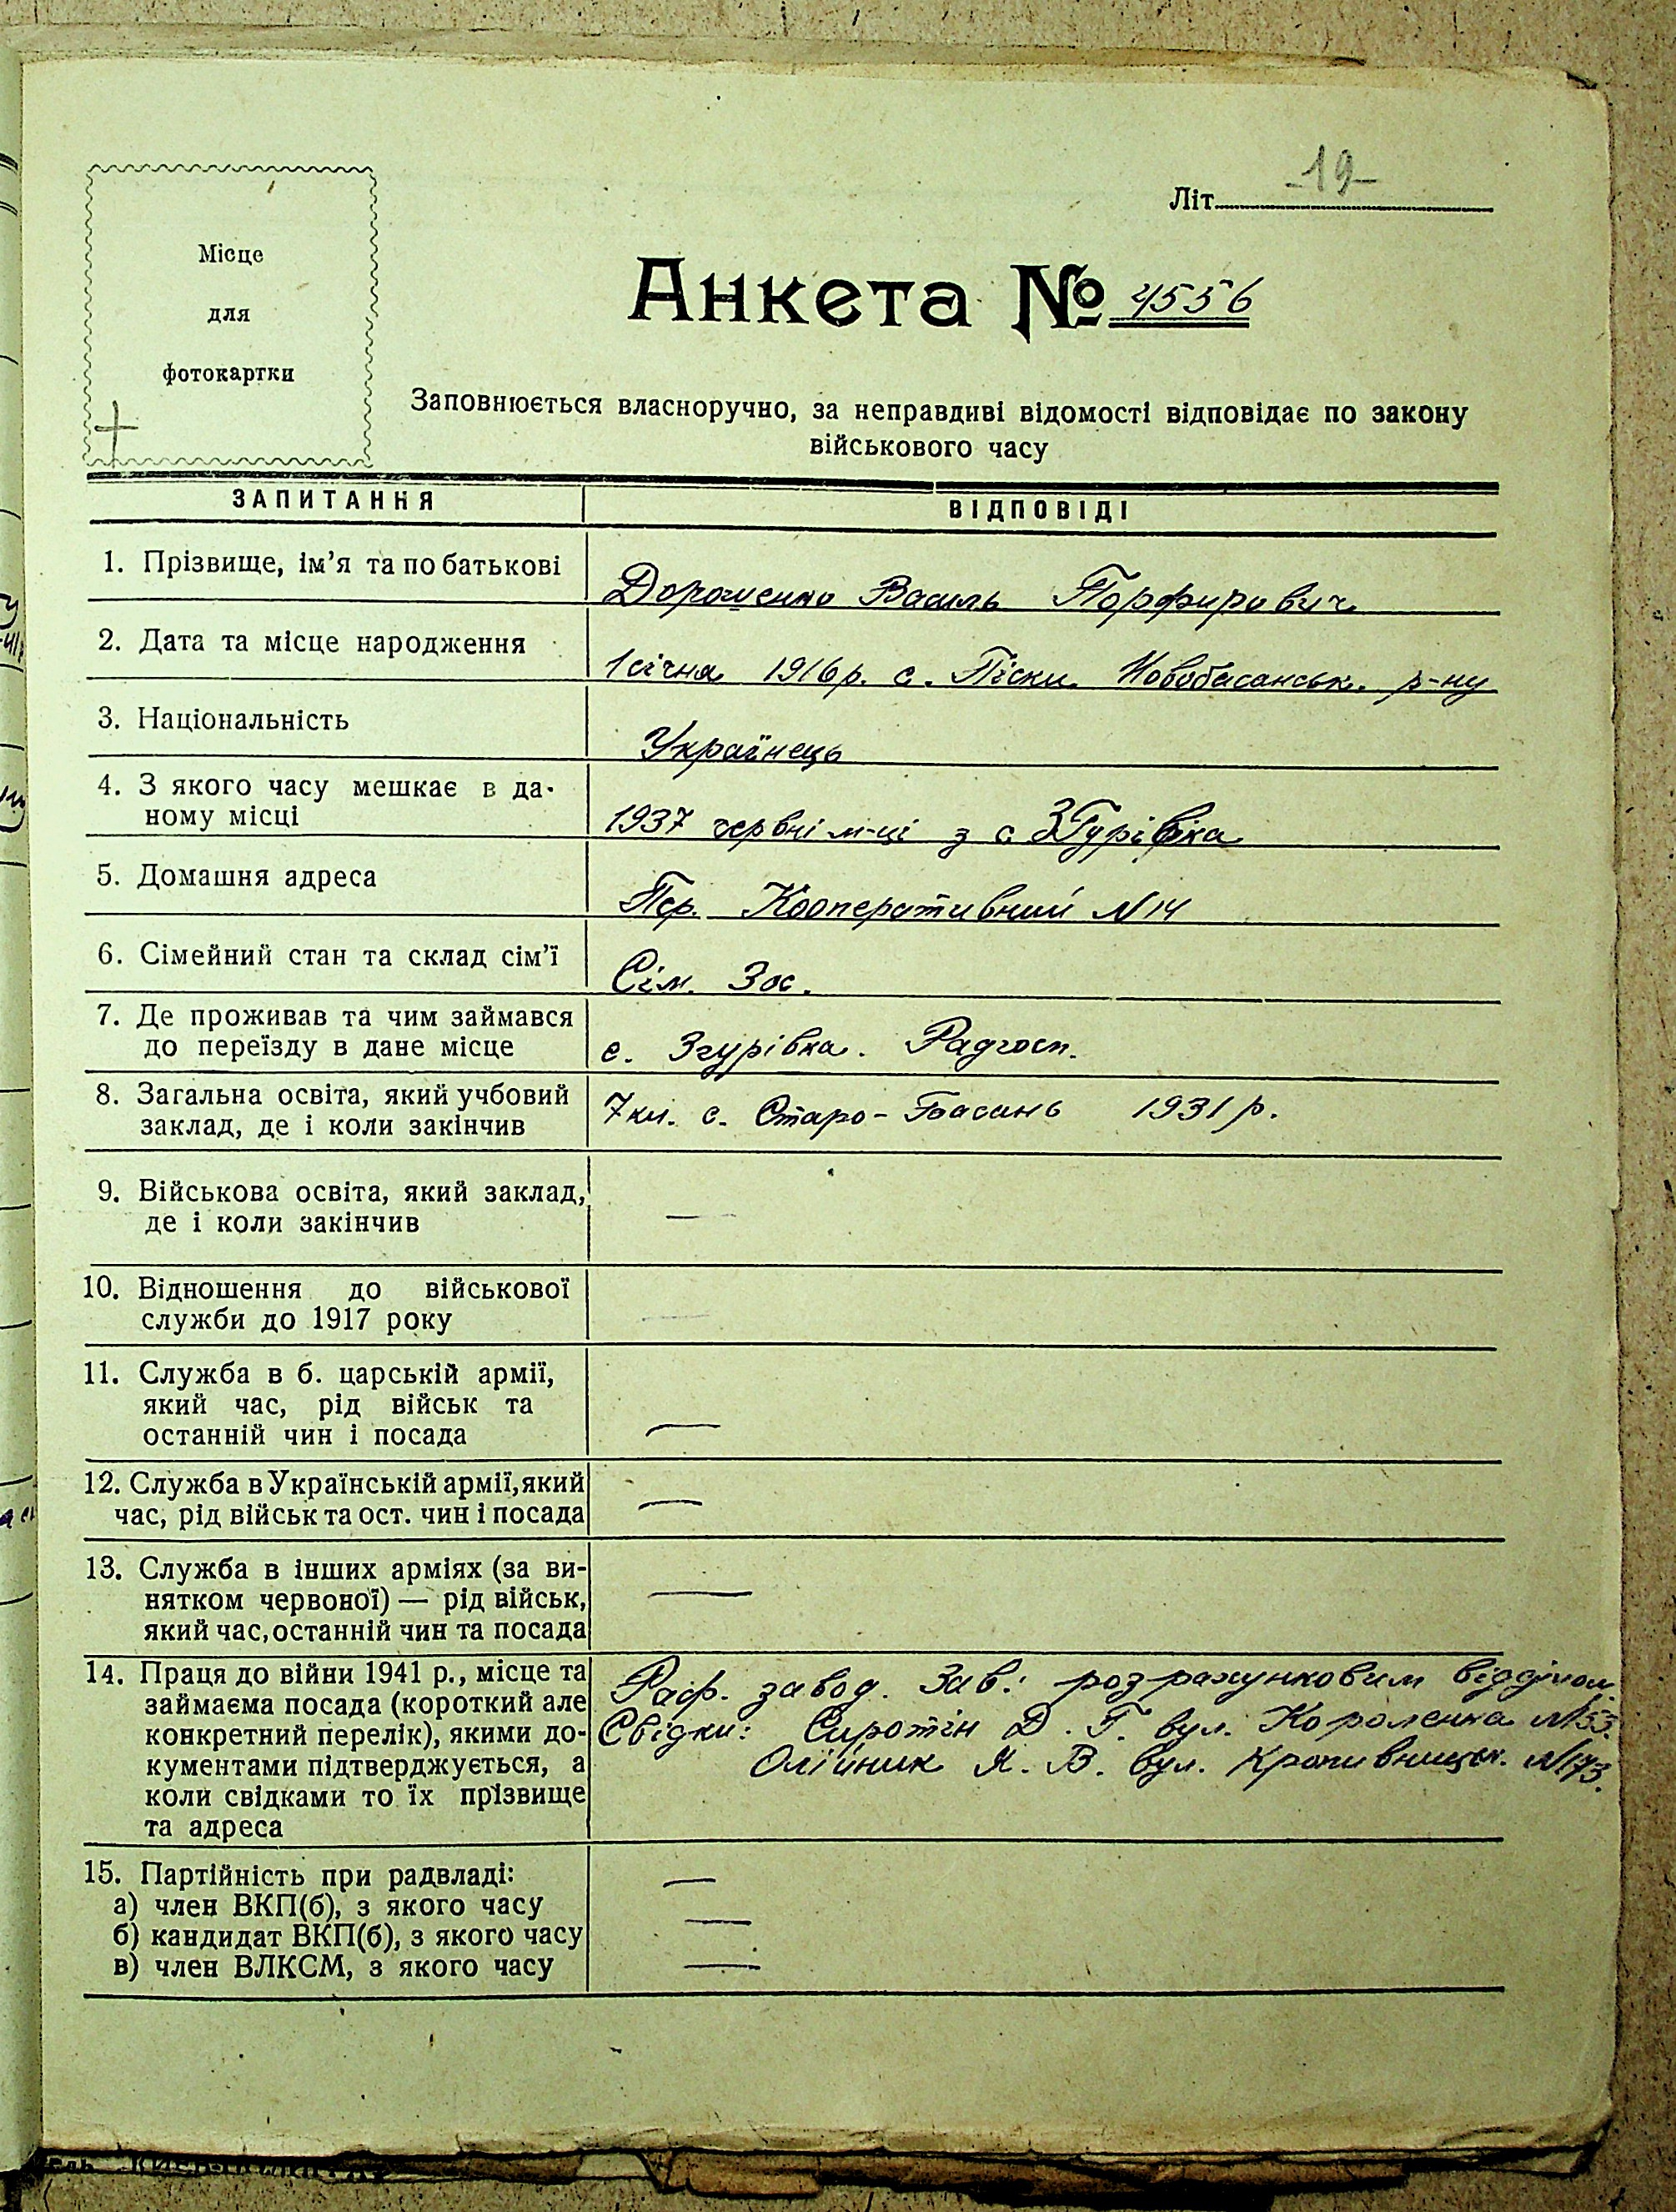 -19-
Літ
Місце
для
фотокартки
Анкета № 4556
Заповнюється власноручно, за неправдиві відомості відповідає по закону
військового часу
ЗАПИТАННЯ
ВІДПОВІДІ
1. Прізвище, ім'я та по батькові
Дорошенко Василь Порфирович
2. Дата та місце народження
1 січня 1916 р. с. Піски Новобасанськ. р-ну
3. Національність
Українець
4. З якого часу мешкає в да-
ному місці
1937 червні м-ці з с Згурівка
5. Домашня адреса
Пер. Кооперативний N 14
6. Сімейний стан та склад сім'ї
Сім. 3 ос.
7. Де проживав та чим займався
до переїзду в дане місце
с. Згурівка. Радгосп.
8. Загальна освіта, який учбовий
заклад, де і коли закінчив
7 кл. с. Старо-Басань 1931 р.
9. Військова освіта, який заклад,
де і коли закінчив
—
10. Відношення до військової
служби до 1917 року
—
11. Служба в б. царській армії,
який час, рід військ та
останній чин і посада
—
12. Служба в Українській армії, який
час, рід військ та ост. чин і посада
—
13. Служба в інших арміях (за ви-
нятком червоної) — рід військ,
який час, останній чин та посада
—
14. Праця до війни 1941 р., місце та
займаєма посада (короткий але
конкретний перелік), якими до-
кументами підтверджується, а
коли свідками то їх прізвище
та адреса
Раф. завод. Зав. розрахунковим відділом.
Свідки: Сиротін Д. Г. вул. Короленка N 53.
Олійник Я. В. вул. Кропивницьк. N 173.
15. Партійність при радвладі:
а) член ВКП(б), з якого часу
—
б) кандидат ВКП(б), з якого часу
—
в) член ВЛКСМ, з якого часу
—